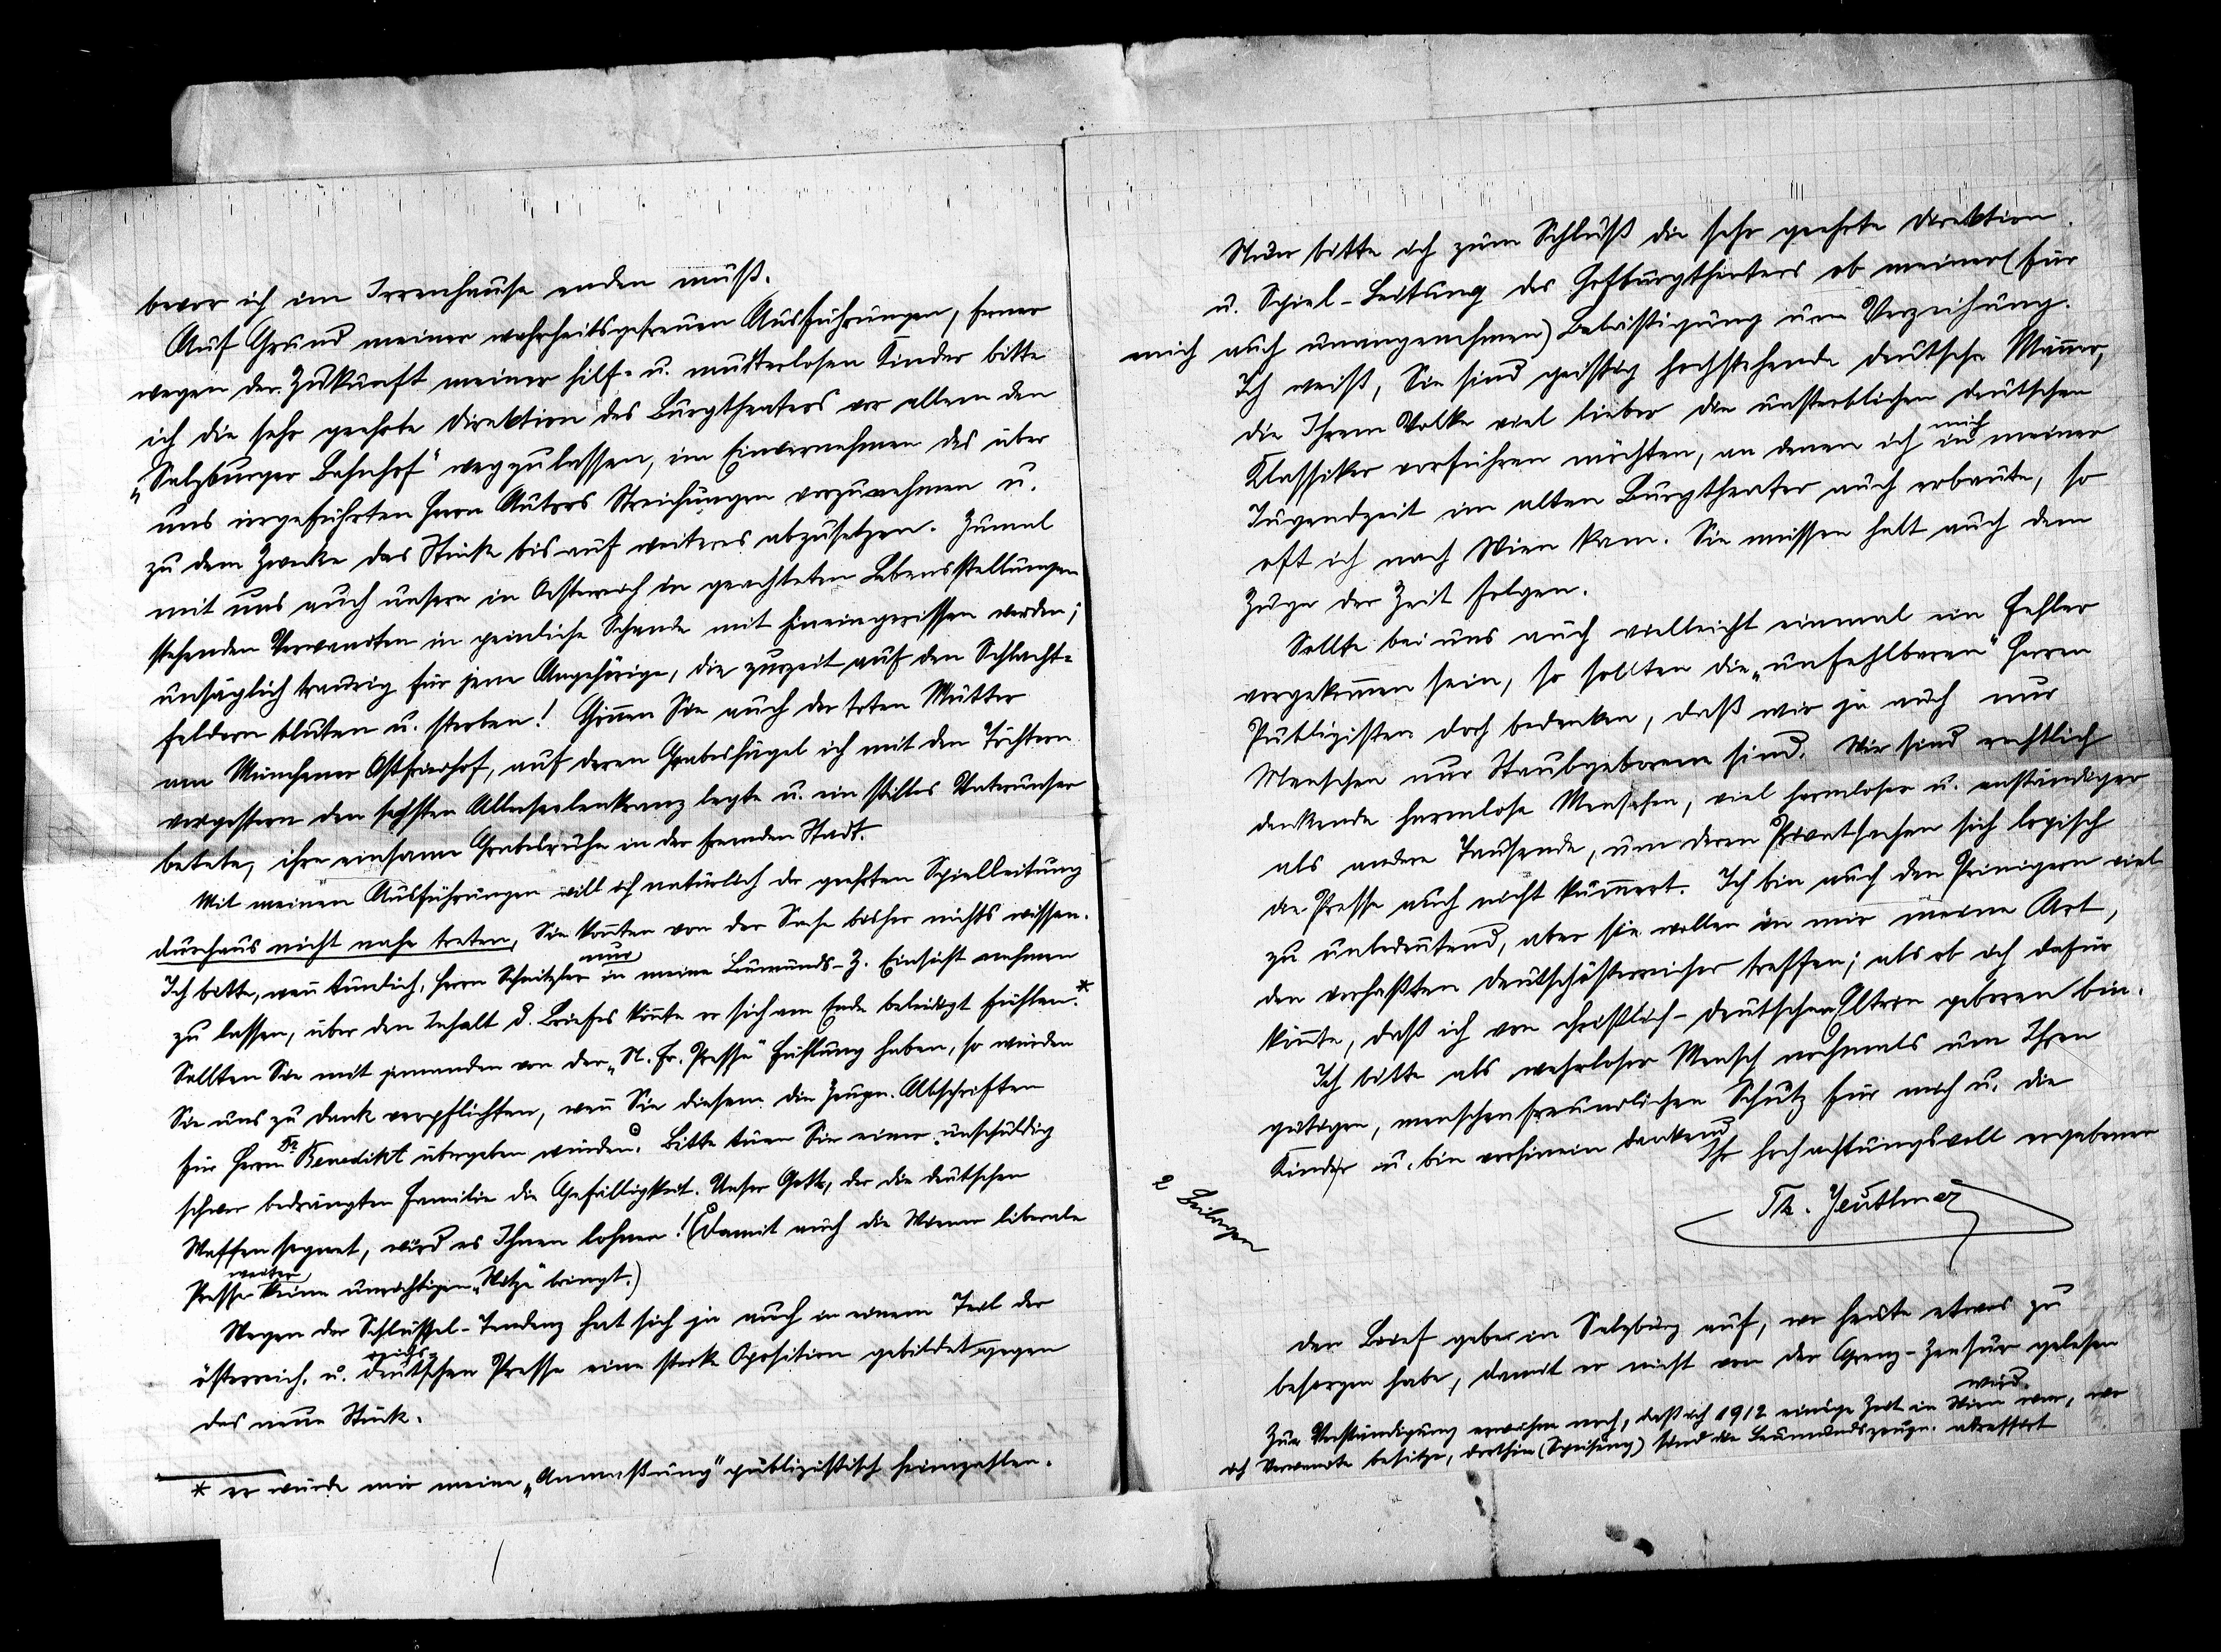 bevor ich im Irrenhause enden muß.
Auf Grund meiner wahrheitsgetreuen Ausführungen, ferner
wegen der Zukunft meiner hilf- u. mutterlosen Kinder bitte
ich die sehr geehrte Direktion des Burgtheaters vor allem den
„Salzburger Bahnhof" wegzulassen, im Einvernehmen des über
uns irregeführten Herrn Autors Streichungen vorzunehmen u.
zu dem Zwecke das Stück bis auf weiteres abzusetzen. Zumal
mit uns auch unsere in Oesterreich in geachteten Lebensstellungen
stehenden Verwandten in peinliche Schande mit hineingerissen werden;
unsäglich traurig für jene Angehörige, die zurzeit auf den Schlacht-
feldern bluten u. sterben! Gönnen Sie auch der toten Mutter
am Münchener Ostfriedhof, auf deren Grabeshügel ich mit den Töchtern
vorgestern den sechsten Allerseelenkranz legte u. ein stilles Vaterunser
betete, ihre einsame Grabesruhe in der fremden Stadt.
Mit meinen Ausführungen will ich natürlich der geehrten Spielleitung
durchaus nicht nahe treten, Sie konnten von der Sache bisher nichts wissen.
Ich bitte, wenn tunlich, Herrn Schnitzler nur in meine Leumunds-Z. Einsicht nehmen
zu lassen, über den Inhalt d. Briefes könnte er sich am Ende beleidigt fühlen.*
Sollten Sie mit jemanden von der „N. Fr. Presse" Fühlung haben, so würden
Sie uns zu Dank verpflichten, wenn Sie diesem die Zeugn. Abschriften
für Herrn Dr. Benedikt übergeben würden. Bitte tuen Sie einer unschuldig
schwer bedrängten Familie die Gefälligkeit. Unser Gott, der die deutschen
Waffen segnet, wird es Ihnen lohnen! (Damit auch die Wiener liberale
Presse weiter keine unrichtigen „Witze" bringt.)
Wegen der Schlüssel-Tendenz hat sich ja auch in einem Teil der
österreich. u. reichs-deutschen Presse eine starke Oposition gebildet gegen
das neue Stück.
* er würde mir meine „Anmaßung" publizistisch heimzahlen.
Nun bitte ich zum Schluß die sehr geehrte Direktion
u. Spiel-Leitung des Hofburgtheaters ob meiner (für
mich auch unangenehmen) Belästigung um Verzeihung.
Ich weiß, Sie sind geistig hochstehende deutsche Männer,
die Ihrem Volke viel lieber die unsterblichen deutschen
Klassiker vorführen möchten, an denen ich mich in meiner
Jugendzeit im alten Burgtheater auch erbaute, so
oft ich nach Wien kam. Sie müssen halt auch dem
Zuge der Zeit folgen.
Sollte bei uns auch vielleicht einmal ein Fehler
vorgekommen sein, so sollten die „unfehlbaren" Herren
Publizisten doch bedenken, daß wir ja auch nur
Menschen nur Staubgeborene sind. Wir sind rechtlich
denkende harmlose Menschen, viel harmloser u. anständiger
als andere Tausende, um deren Privatsachen sich logisch
die Presse auch nicht kümmert. Ich bin auch den Peinigern viel
zu unbedeutend, aber sie wollen in mir meine Art,
den verhaßten Deutschösterreicher treffen; als ob ich dafür
könnte, daß ich von christlich-deutschen Eltern geboren bin.
Ich bitte als wehrloser Mensch nochmals um Ihren
gütigen, menschenfreundlichen Schutz für mich u. die
Kinder u. bin vorhinein dankend
Ihr hochachtungsvoll ergebener
2 Beilagen
Den Brief gebe in Salzburg auf, wo heute etwas zu
besorgen habe, damit er nicht von der Grenz-Zensur gelesen
wird.
Zur Verständigung erwähne noch, daß ich 1912 einige Zeit in Wien war, wo
ich Verwandte besitze, dorthin (Speising) sind die Leumundszeugn. adressiert